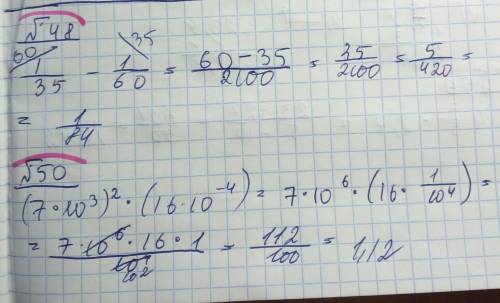 №48
60 35
1/35 - 1/60 = (60-35)/2100 = 35/2100 = 5/420 =
= 1/84
№50
(7·10³)²·(16·10⁻⁴) = 7·10⁶·(16·1/10⁴) =
= (7·10⁶·16·1)/10⁴ 10² = 112/100 = 1,12